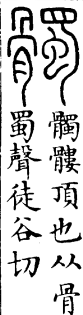 髑
髑髏頂也从骨
蜀聲徒谷切